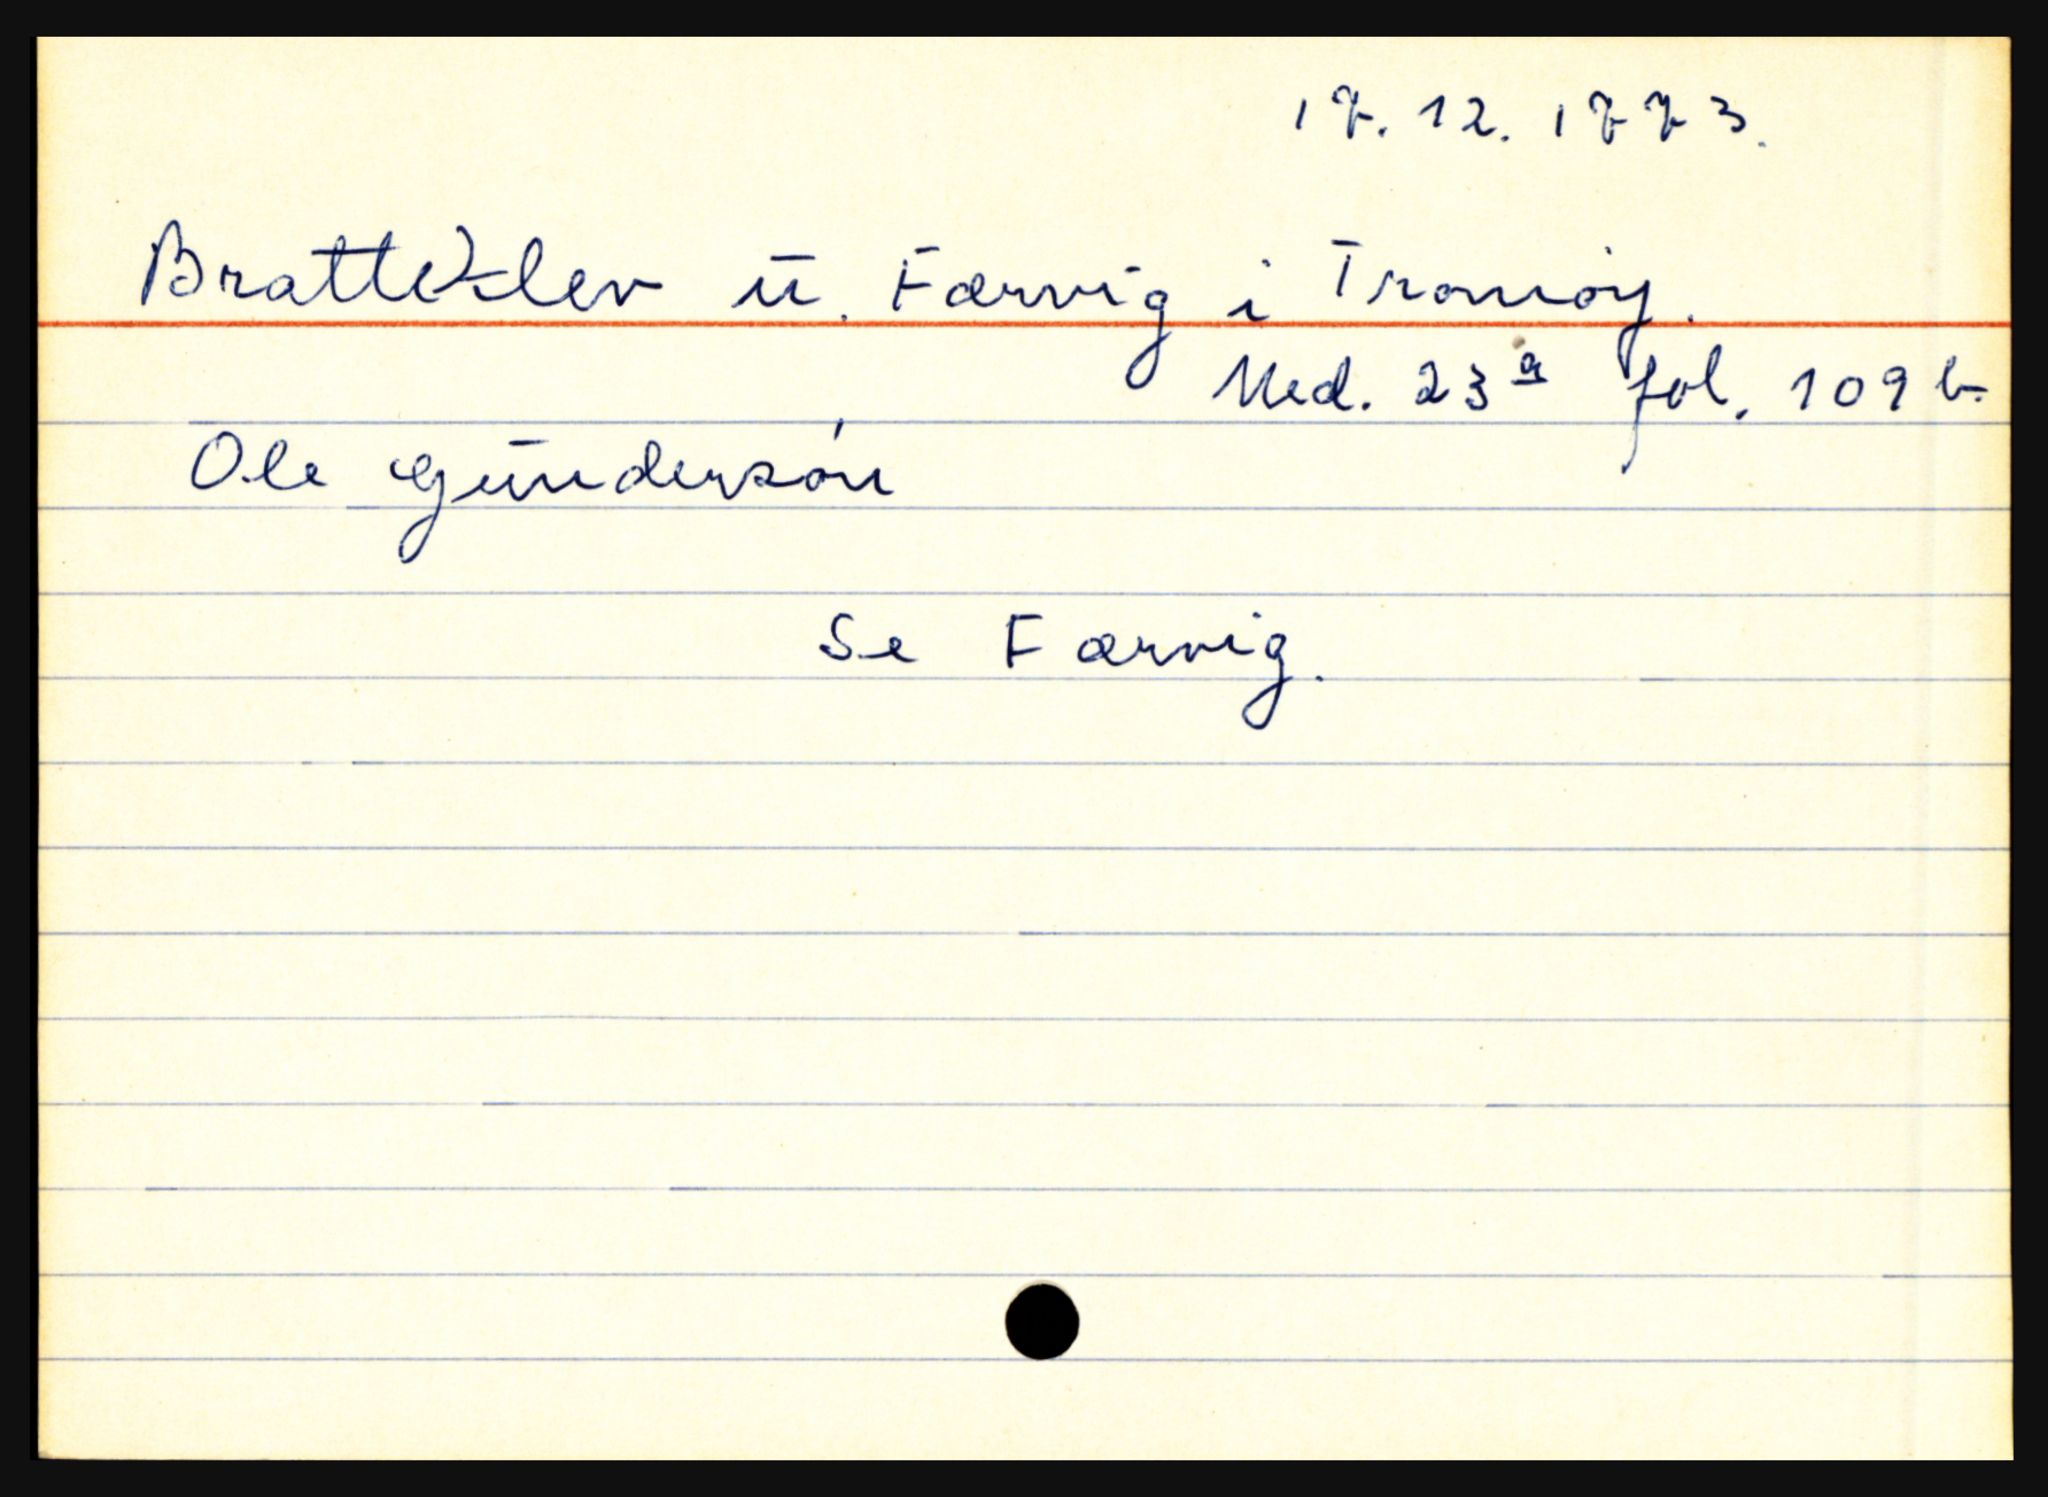 17. 12. 1773.
Bratteklev u. Færvig i Tromøy.
Ned. 23a fol. 109 b.
Ole Gunderson
Se Færvig.